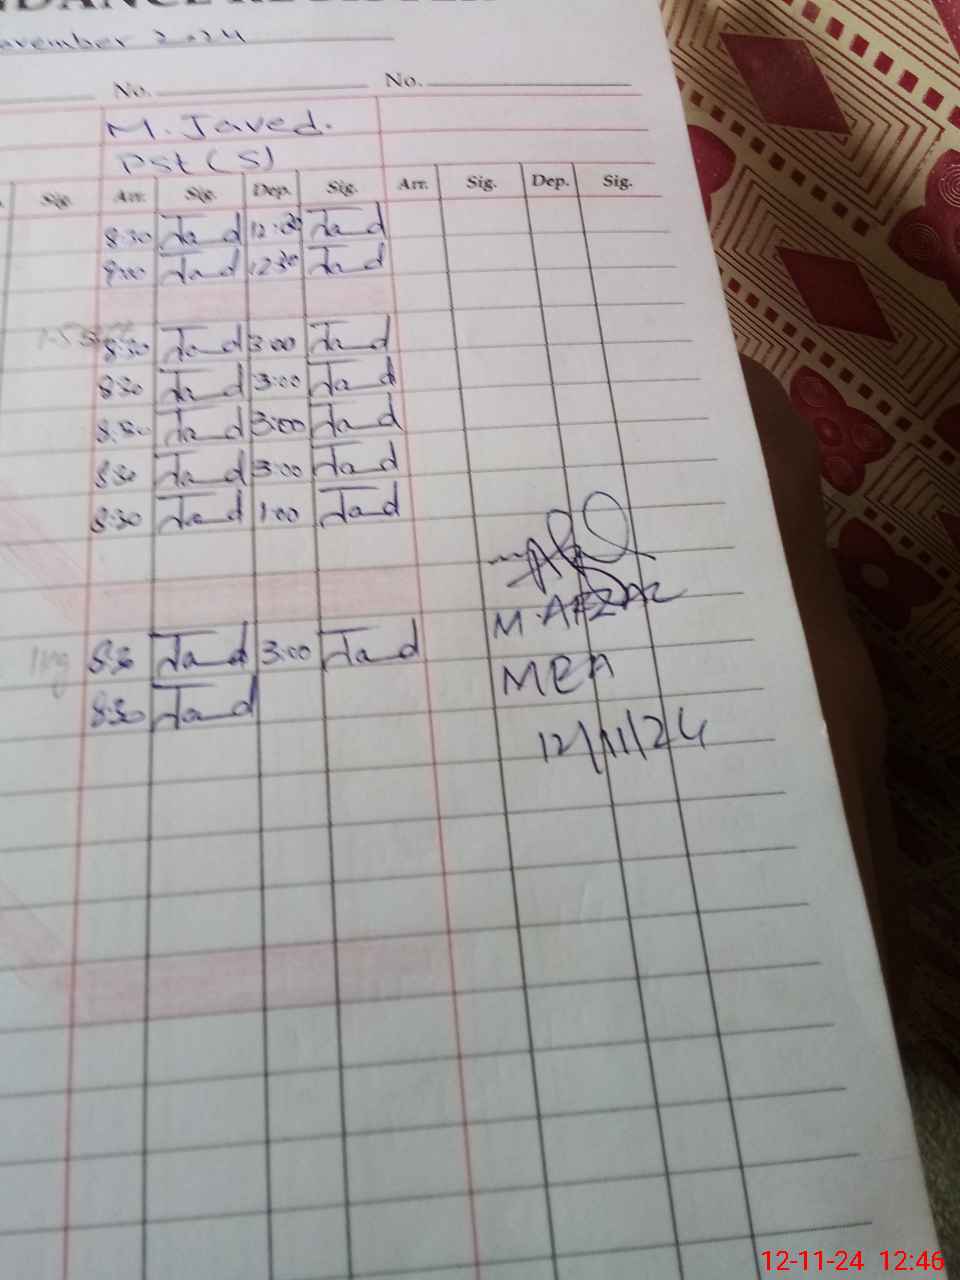 NDANCE REGISTER
ovember 2024
No. No.
M. Javed.
Pst (S)
Sig. Arr. Sig. Dep. Sig. Arr. Sig. Dep. Sig.
8:30 Jad 12:30 Jad
9:00 Jad 12:30 Jad
8:30 Jad 3:00 Jad
8:30 Jad 3:00 Jad
8:30 Jad 3:00 Jad
8:30 Jad 3:00 Jad
8:30 Jad 1:00 Jad
M. AFZAL
8:30 Jad 3:00 Jad
MEA
8:30 Jad
12/11/24
12-11-24 12:46